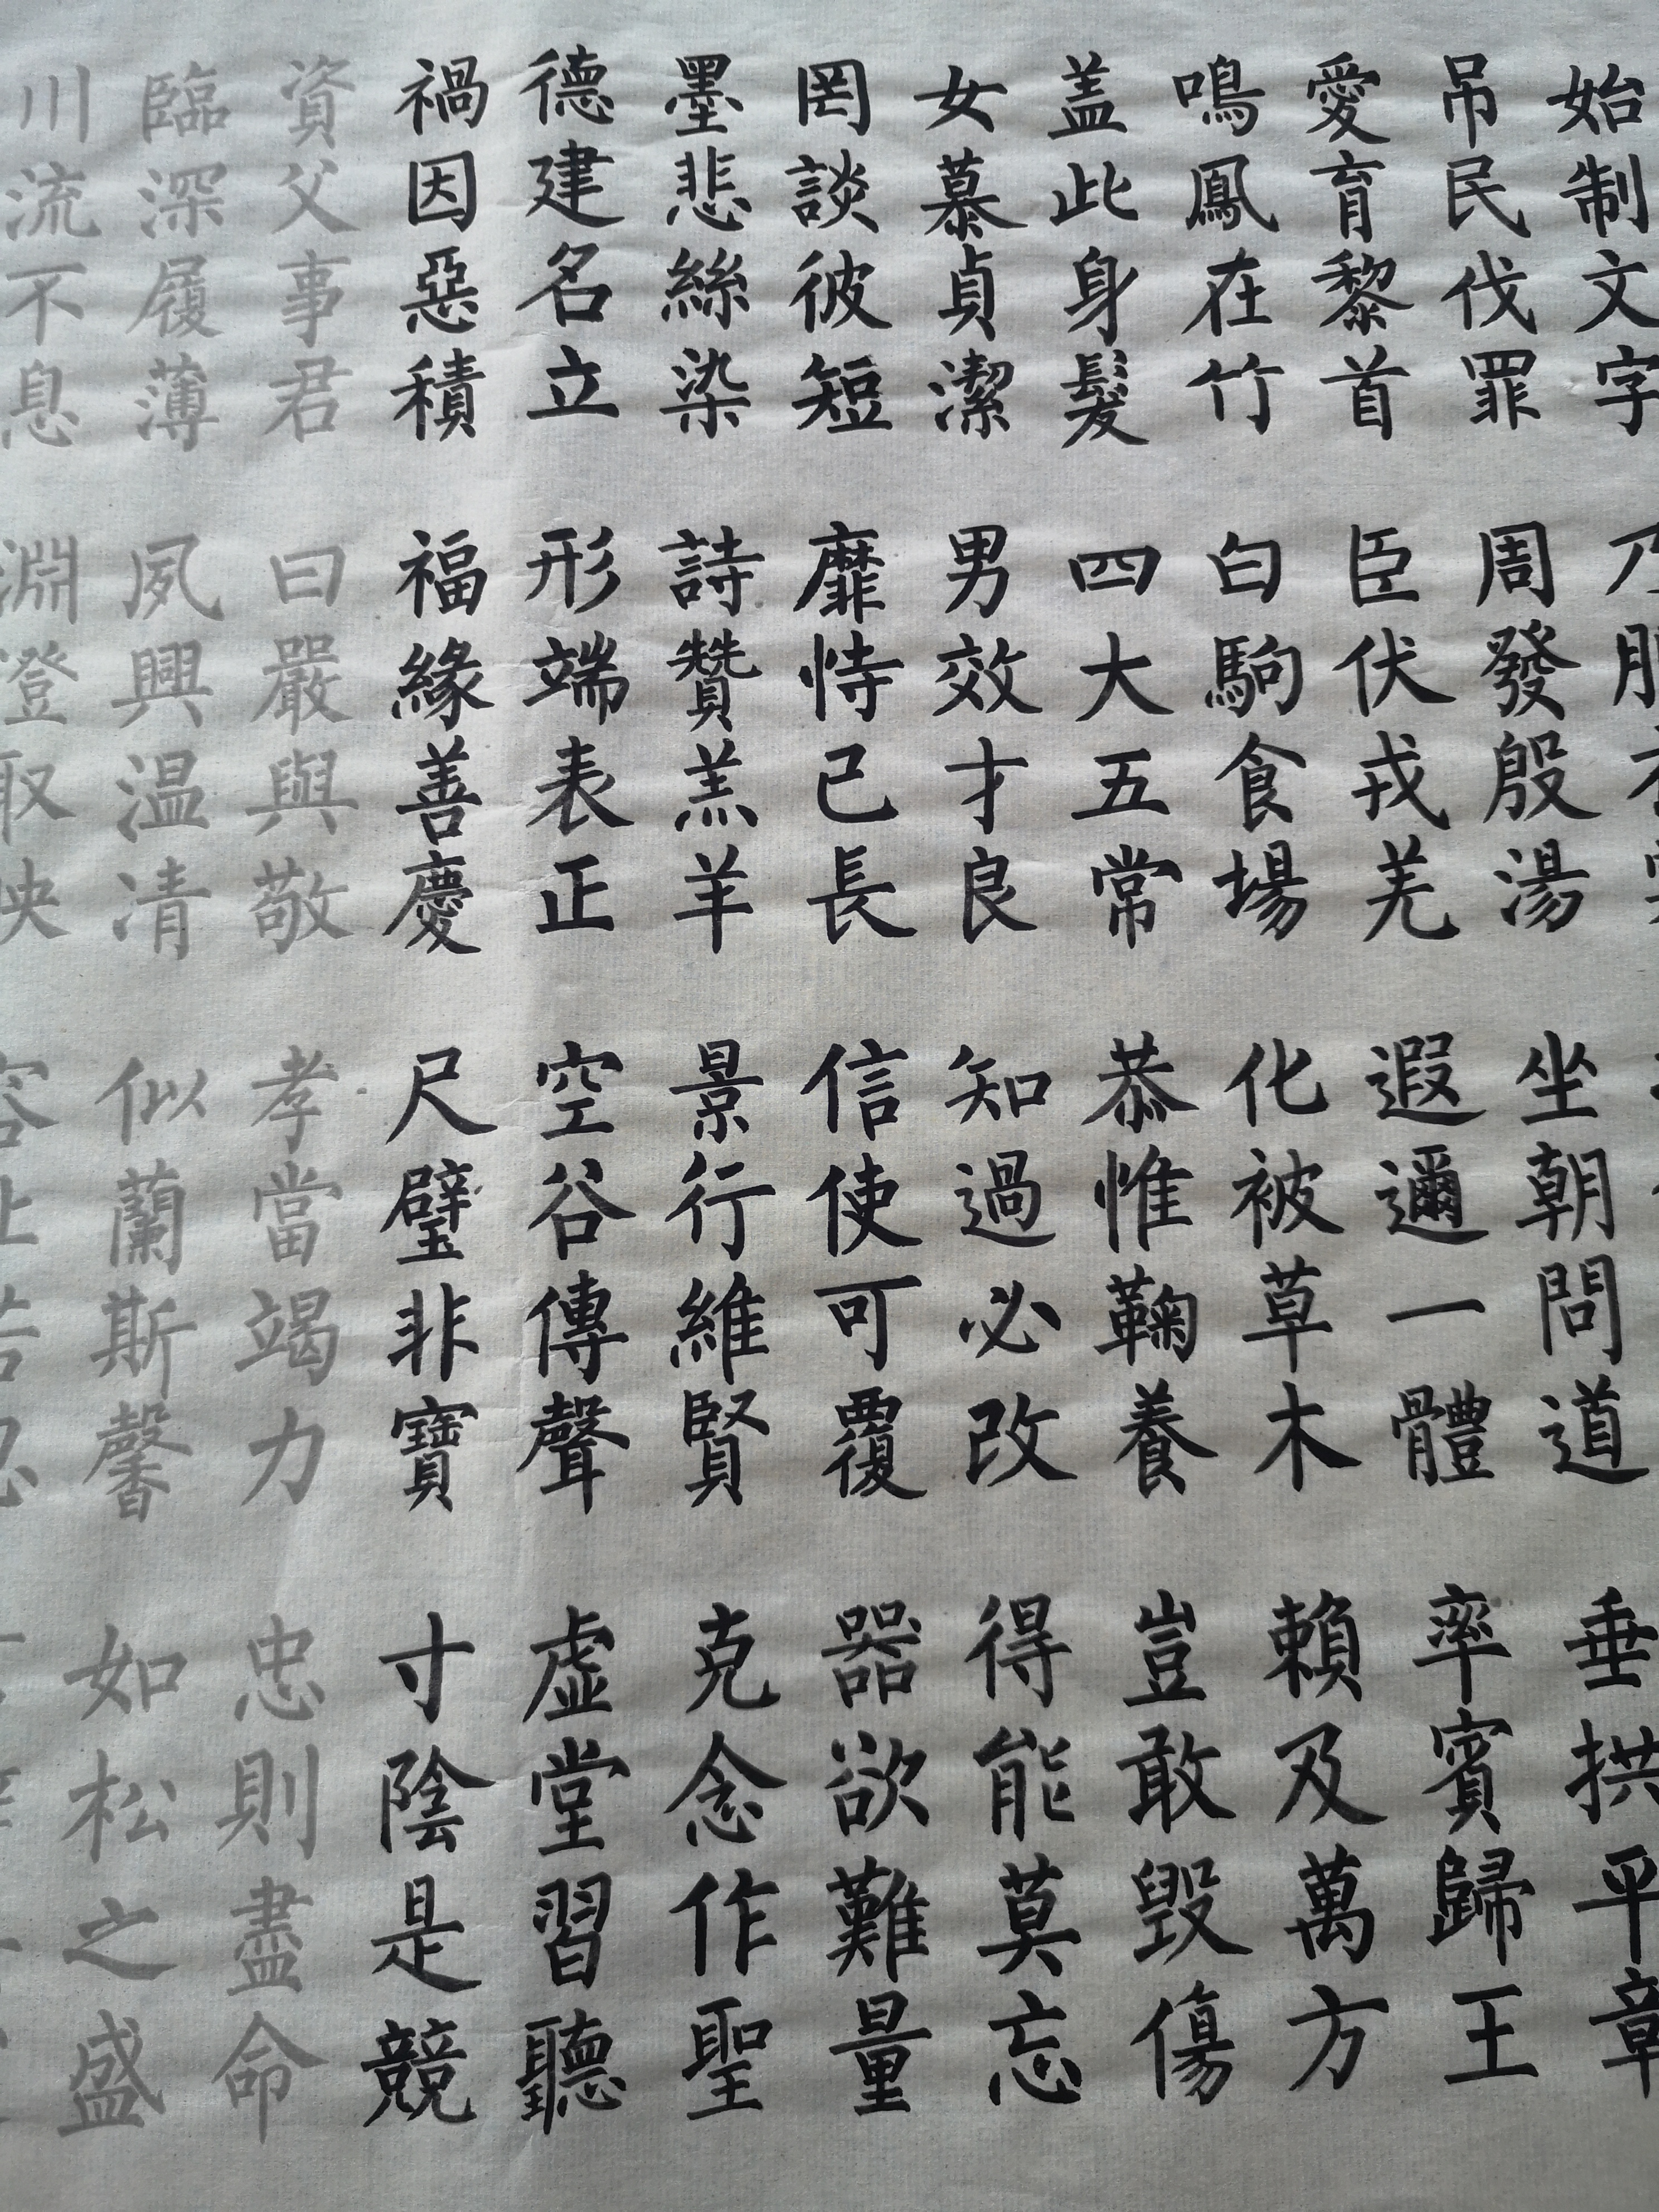 始制文字 乃服
吊民伐罪 周發殷湯 坐朝問道 垂拱平章
愛育黎首 臣伏戎羌 遐邇一體 率賓歸王
鳴鳳在竹 白駒食場 化被草木 賴及萬方
盖此身髮 四大五常 恭惟鞠養 豈敢毀傷
女慕貞潔 男效才良 知過必改 得能莫忘
罔談彼短 靡恃己長 信使可覆 器欲難量
墨悲絲染 詩贊羔羊 景行維賢 克念作聖
德建名立 形端表正 空谷傳聲 虛堂習聽
禍因惡積 福緣善慶 尺璧非寶 寸陰是競
資父事君 曰嚴與敬 孝當竭力 忠則盡命
臨深履薄 夙興温凊 似蘭斯馨 如松之盛
川流不息 淵澄取映 容止若思